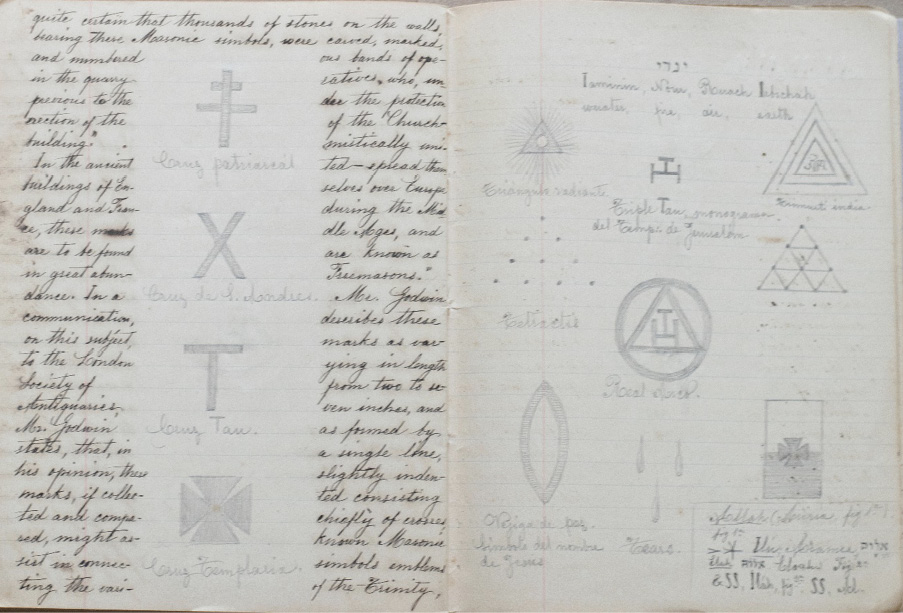 quite certain that thousands of stones on the walls,
bearing these Masonic simbols, were carved, marked,
and numbered
in the quarry
previous to the
erection of the
building."
In the ancient
buildings of En-
gland and Fran-
ce, these marks
are to be found
in great abun-
dance. In a
communication,
on this subject,
to the London
Society of
Antiquaries,
Mr. Godwin
states, that, in
his opinion, these
marks, if collec-
ted and compa-
red, might as-
sist in connec-
ting the vari-
Cruz patriarcal
Cruz de S. Andres.
Cruz Tau.
Cruz Templaria.
ous bands of ope-
ratives, who, un-
der the protection
of the "Church-
mistically uni-
ted—spread them
selves over Europe
during the Mid
dle Ages, and
are known as
Freemasons."
Mr. Godwin
describes these
marks as var-
ying in length
from two to se-
ven inches, and
as formed by
a single line,
slightly inden-
ted consisting
chiefly of crosses,
known Masonic
simbols emblems
of the Trinity,
ינרי
Iaminin, Nour, Ruach Iebschah
water, fire, air, earth
Triángulo radiante
Triple Tau, monograma
del Templ. de Jerusalem
Tetractis
Real Arco.
Símbolo del nombre
de Jesus
Tears.